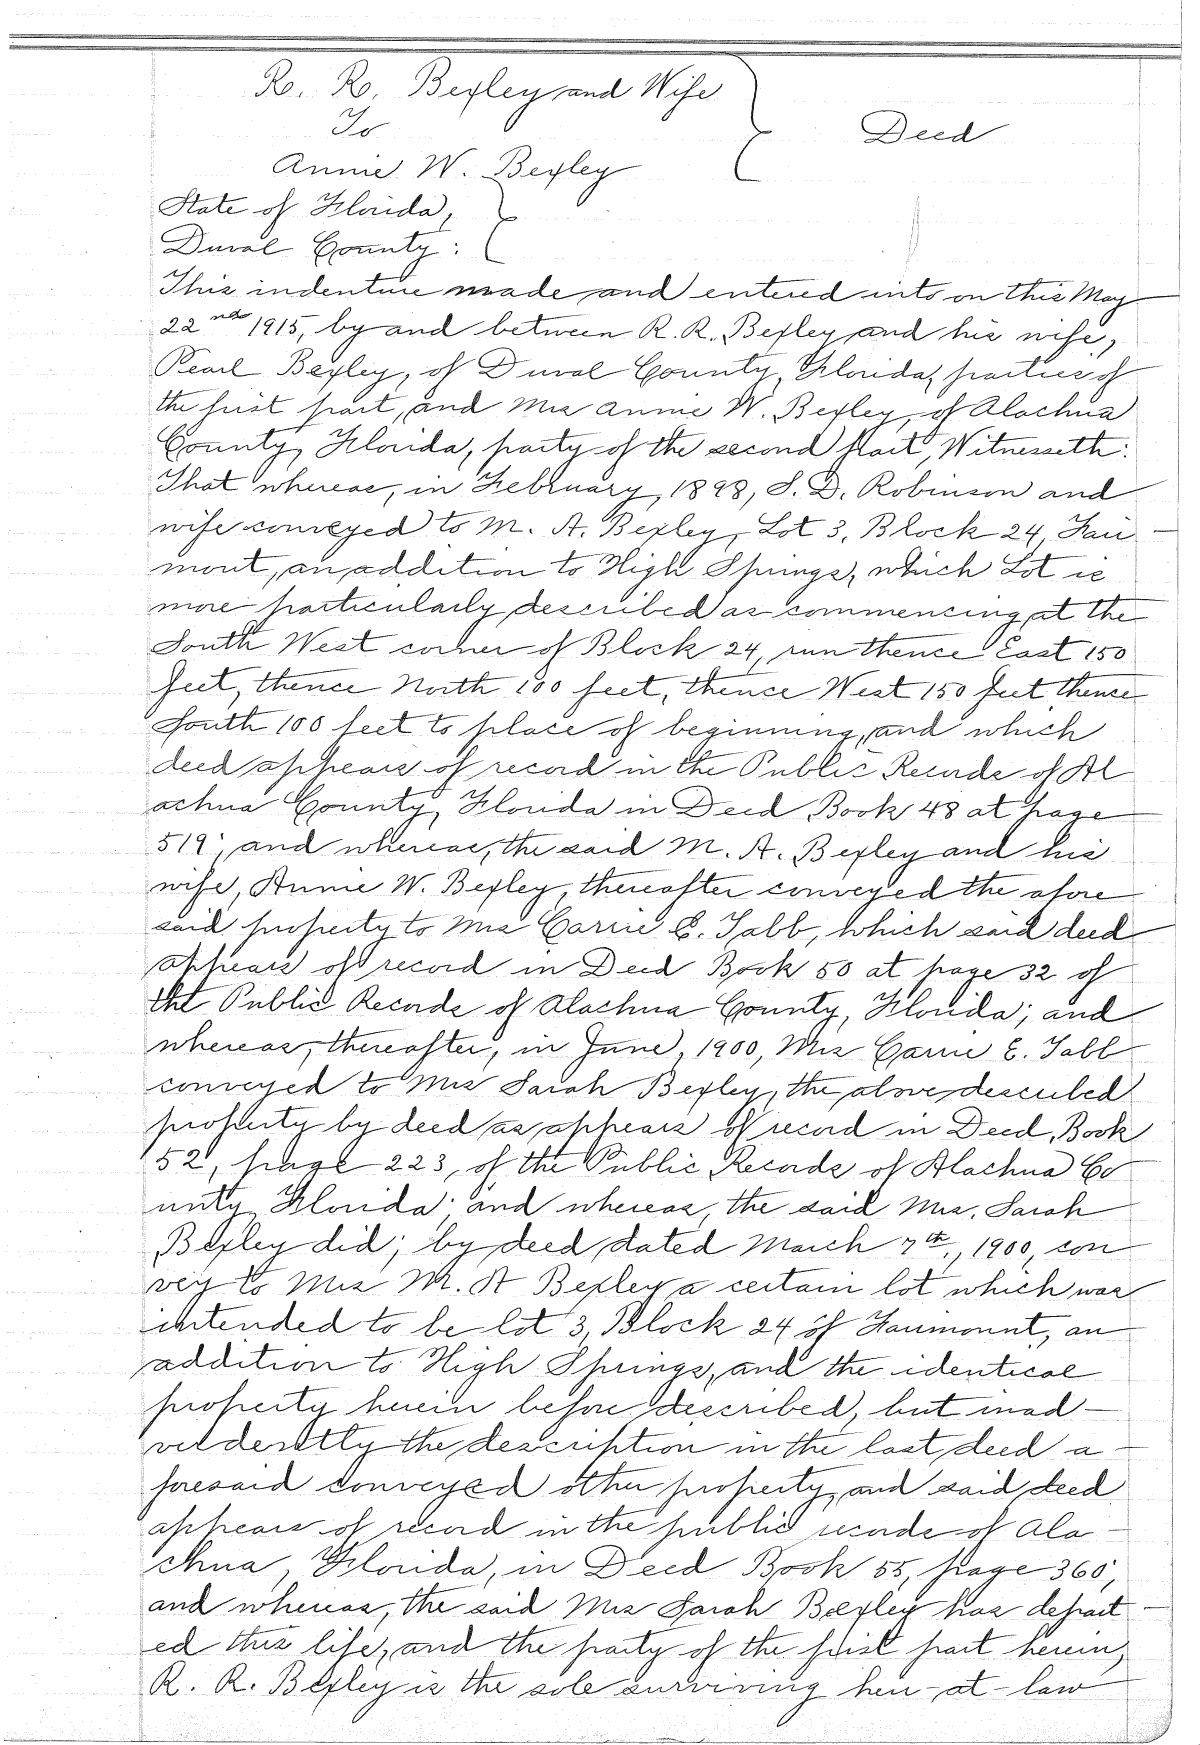 R. R. Bexley and Wife
To
Deed
Annie W. Bexley
State of Florida,
Duval County:
This indenture made and entered into on this May
22nd 1915, by and between R. R. Bexley and his wife,
Pearl Bexley, of Duval County, Florida, parties of
the first part, and Mrs Annie W. Bexley, of Alachua
County, Florida, party of the second part, Witnesseth:
That whereas, in February, 1898, S. D. Robinson and
wife conveyed to M. A. Bexley, Lot 3, Block 24, Fair
mont, an addition to High Springs, which Lot is
more particularly described as commencing at the
South West corner of Block 24, run thence East 150
feet, thence North 100 feet, thence West 150 feet thence
South 100 feet to place of beginning, and which
deed appears of record in the Public Records of Al
achua County, Florida in Deed Book 48 at page
519; and whereas, the said M. A. Bexley and his
wife, Annie W. Bexley, thereafter conveyed the afore
said property to Mrs Carrie E. Tabb, which said deed
appears of record in Deed Book 50 at page 32 of
the Public Records of Alachua County, Florida; and
whereas, thereafter, in June, 1900, Mrs Carrie E. Tabb
conveyed to Mrs Sarah Bexley, the above described
property by deed as appears of record in Deed Book
52, page 223, of the Public Records of Alachua Co
unty, Florida; and whereas, the said Mrs. Sarah
Bexley did; by deed dated March 7th, 1900, con
vey to Mrs M. A Bexley a certain lot which was
intended to be lot 3, Block 24 of Fairmount, an
addition to High Springs, and the identical
property herein before described, but inad-
verdently the description in the last deed a-
foresaid conveyed other property, and said deed
appears of record in the public records of Ala-
chua, Florida, in Deed Book 55, page 360;
and whereas, the said Mrs Sarah Bexley has depart-
ed this life, and the party of the first part herein,
R. R. Bexley is the sole surviving heir-at-law